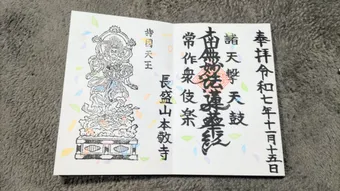 奉拝 令和七年十一月十五日
諸天撃天鼓
南無妙法蓮華経
常作衆伎楽
長盛山本敬寺
持国天王